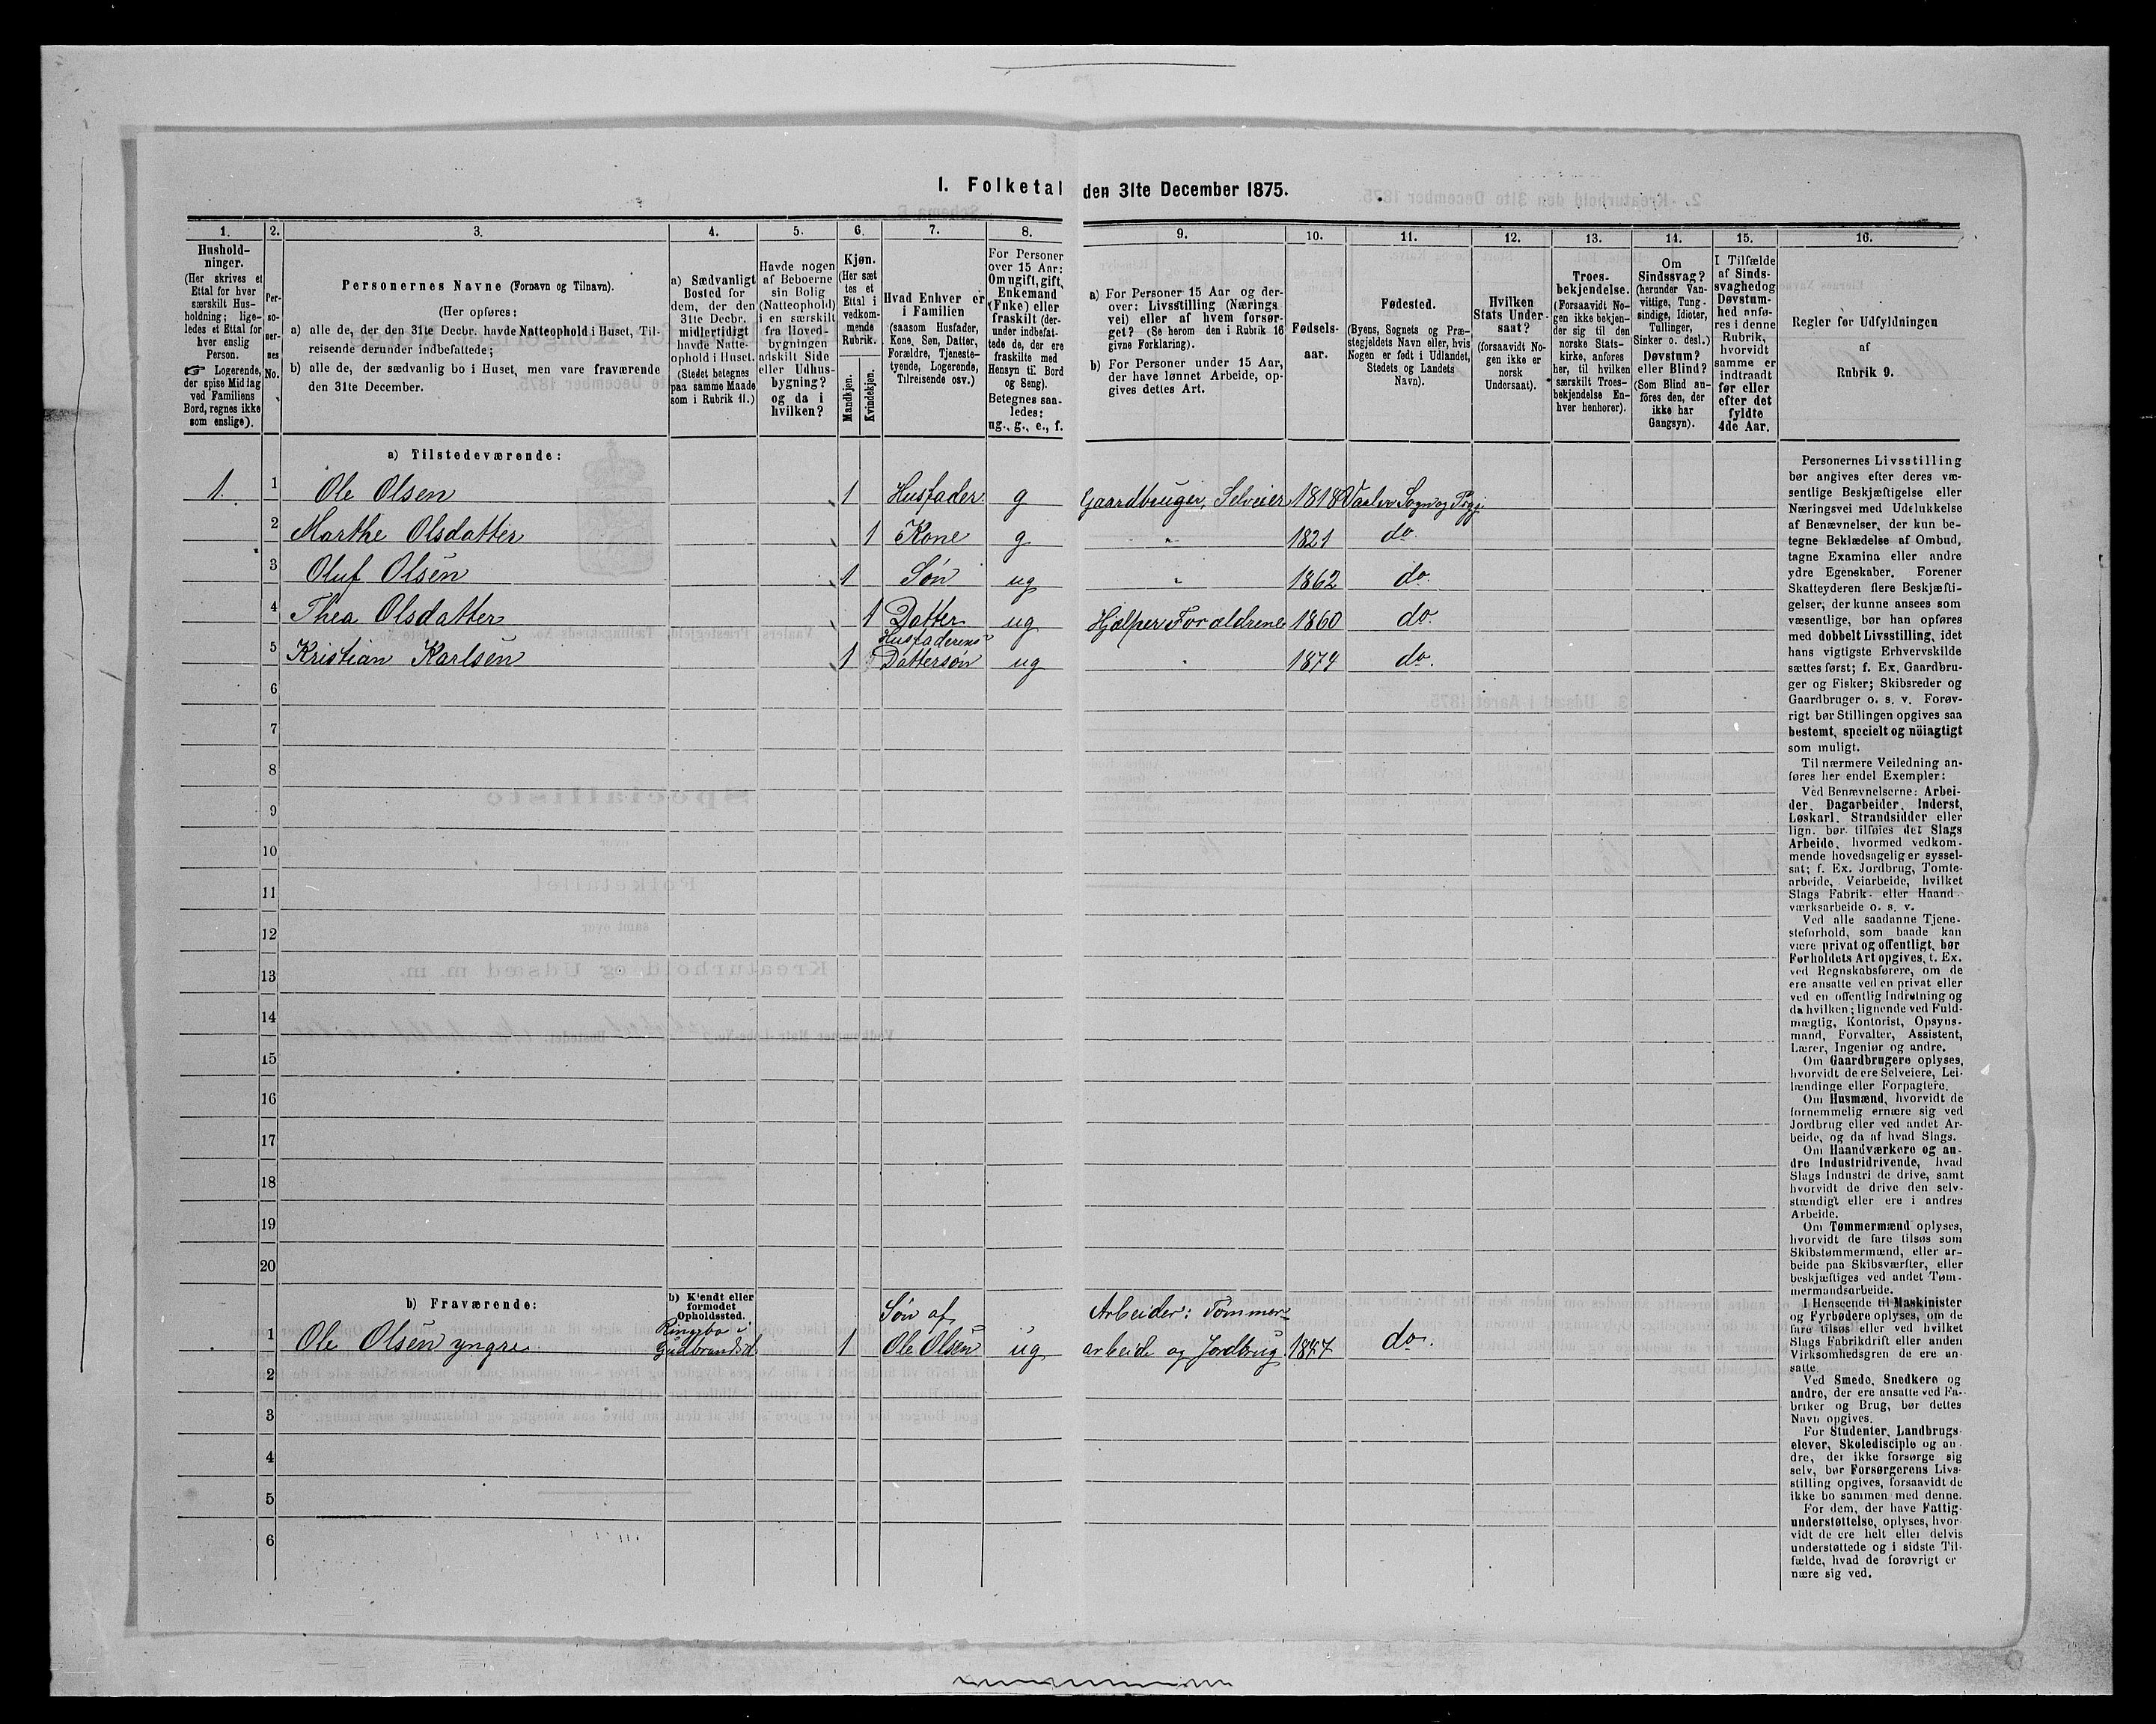 1. Folketal den 31te December 1875.
1.
2.
3.
4.
5.
6.
7.
8.
9.
10.
11.
12.
13.
14.
15.
16.
Hushold-
ninger.
(Her skrives et
Ettal for hver
særskilt Hus-
holdning; lige-
ledes et Ettal for
hver enslig
Person.
☞ Logerende,
der spise Middag
ved Familiens
Bord, regnes ikke
som enslige).
Per-
so-
ner-
nes
No.
Personernes Navne (Fornavn og Tilnavn).
(Her opføres:
a) alle de, der den 31te Decbr. havde Natteophold i Huset, Til-
reisende derunder indbefattede;
b) alle de, der sædvanlig bo i Huset, men vare fraværende
den 31te December.
a) Sædvanligt
Bosted for
dem, der den
31te Decbr.
midlertidigt
havde Natte-
ophold i Huset.
(Stedet betegnes
paa samme Maade
som i Rubrik 11.)
Havde nogen
af Beboerne
sin Bolig
(Natteophold)
i en særskilt
fra Hoved-
bygningen
adskilt Side
eller Udhus-
bygning?
og da i
hvilken?
Kjøn.
(Her sæt
tes et
Ettal i
vedkom-
mende
Rubrik.
Mandkjøn.
Kvindekjøn.
Hvad Enhver er
i Familien
(saasom Husfader,
Kone, Søn, Datter,
Forældre, Tjeneste-
tyende, Logerende,
Tilreisende osv.)
For Personer
over 15 Aar:
Om ugift, gift,
Enkemand
(Enke) eller
fraskilt (der-
under indbefat-
tede de, der ere
fraskilte med
Hensyn til Bord
og Seng).
Betegnes saa-
ledes:
ug., g., e., f.
a) For Personer 15 Aar og der-
over: Livsstilling (Nærings
vei) eller af hvem forsør-
get? (Se herom den i Rubrik 16
givne Forklaring).
b) For Personer under 15 Aar,
der have lønnet Arbeide, op-
gives dettes Art.
Fødsels-
aar.
Fødested.
(Byens, Sognets og Præ-
stegjeldets Navn eller, hvis
Nogen er født i Udlandet,
Stedets og Landets
Navn).
Hvilken
Stats Under-
saat?
(forsaavidt No-
gen ikke er
norsk
Undersaat).
Troes-
bekjendelse.
(Forsaavidt No-
gen ikke bekjen-
der sig til den
norske Stats-
kirke, anføres
her, til hvilken
særskilt Troes-
bekjendelse En-
hver henhører).
Om
Sindssvag?
(herunder Van-
vittige, Tung-
sindige, Idioter,
Tullinger,
Sinker o. desl.)
Døvstum?
eller Blind?
(Som Blind an-
føres den, der
ikke har
Gangsyn).
I Tilfælde
af Sinds-
svaghed og
Døvstum-
hed anfø-
res i denne
Rubrik,
hvorvidt
samme er
indtraadt
før eller
efter det
fyldte
4de Aar.
Regler for Udfyldningen
af
Rubrik 9.
a) Tilstedeværende:
1. 1 Ole Olsen 1 Husfader g Gaardbruger, Selveier 1818 Vaaler Sogn og Prgj.
2 Marthe Olsdatter 1 Kone g " 1821 do.
3 Oluf Olsen 1 Søn ug " 1862 do.
4 Thea Olsdatter 1 Datter ug Hjælper Forældrene 1860 do.
Husfaderens
5 Kristian Karlsen 1 Dattersøn ug " 1874 do.
6
7
8
9
10
11
12
13
14
15
16
17
18
19
20
b) Fraværende:
b) Kjendt eller
formodet
Opholdssted.
Ringebo i Søn af Arbeider: Tømmer-
1 Ole Olsen yngre. Gudbrandsd. 1 Ole Olsen ug arbeide og Jordbrug 1847 do.
2
3
4
5
6
Personernes Livsstilling
bør angives efter deres væ-
sentlige Beskjæftigelse eller
Næringsvei med Udelukkelse
af Benævnelser, der kun be-
tegne Beklædelse af Ombud,
tagne Examina eller andre
ydre Egenskaber. Forener
Skatteyderen flere Beskjæfti-
gelser, der kunne ansees som
væsentlige, bør han opføres
med dobbelt Livsstilling, idet
hans vigtigste Erhvervskilde
sættes først; f. Ex. Gaardbru-
ger og Fisker; Skibsreder og
Gaardbruger o. s. v. Forøv-
rigt bør Stillingen opgives saa
bestemt, specielt og nöiagtigt
som muligt.
Til nærmere Veiledning an-
føres her endel Exempler:
Ved Benævnelserne: Arbei-
der, Dagarbeider, Inderst,
Løskarl, Strandsidder eller
lign. bør tilføies det Slags
Arbeide, hvormed vedkom-
mende hovedsagelig er syssel-
sat; f. Ex. Jordbrug, Tomte-
arbeide, Veiarbeide, hvilket
Slags Fabrik- eller Haand-
værksarbeide o. s. v.
Ved alle saadanne Tjene-
steforhold, som baade kan
være privat og offentligt, bør
Forholdets Art opgives, t. Ex.
ved Regnskabsførere, om de
ere ansatte ved en privat eller
ved en offentlig Indretning og
da hvilken; lignende ved Fuld-
mægtig, Kontorist, Opsyns-
mand, Forvalter, Assistent,
Lærer, Ingeniør og andre.
Om Gaardbrugere oplyses,
hvorvidt de ere Selveiere, Lei-
lændinge eller Forpagtere.
Om Husmænd, hvorvidt de
fornemmelig ernære sig ved
Jordbrug eller ved andet Ar-
beide, og da af hvad Slags.
Om Haandværkere og an-
dre Industridrivende, hvad
Slags Industri de drive, samt
hvorvidt de drive den selv-
stændigt eller ere i andres
Arbeide.
Om Tømmermænd oplyses,
hvorvidt de fare tilsøs som
Skibstømmermænd, eller ar-
beide paa Skibsværfter, eller
beskjæftiges ved andet Tøm-
mermandsarbeide.
I Henseende til Maskinister
og Fyrbødere oplyses, om de
fare tilsøs eller ved hvilket
Slags Fabrikdrift eller anden
Virksomhedsgren de ere an-
satte.
Ved Smede, Snedkere og
andre, der ere ansatte ved Fa-
briker og Brug, bør dettes
Navn opgives.
For Studenter, Landbrugs-
elever, Skoledisciple og an-
dre, der ikke forsørge sig
selv, bør Forsørgerens Livs-
stilling opgives, forsaavidt de
ikke bo sammen med denne.
For dem, der have Fattig-
understøttelse, oplyses, hvor-
vidt de ere helt eller delvis
understøttede og i sidste Til-
fælde, hvad de forøvrigt er
nære sig ved.